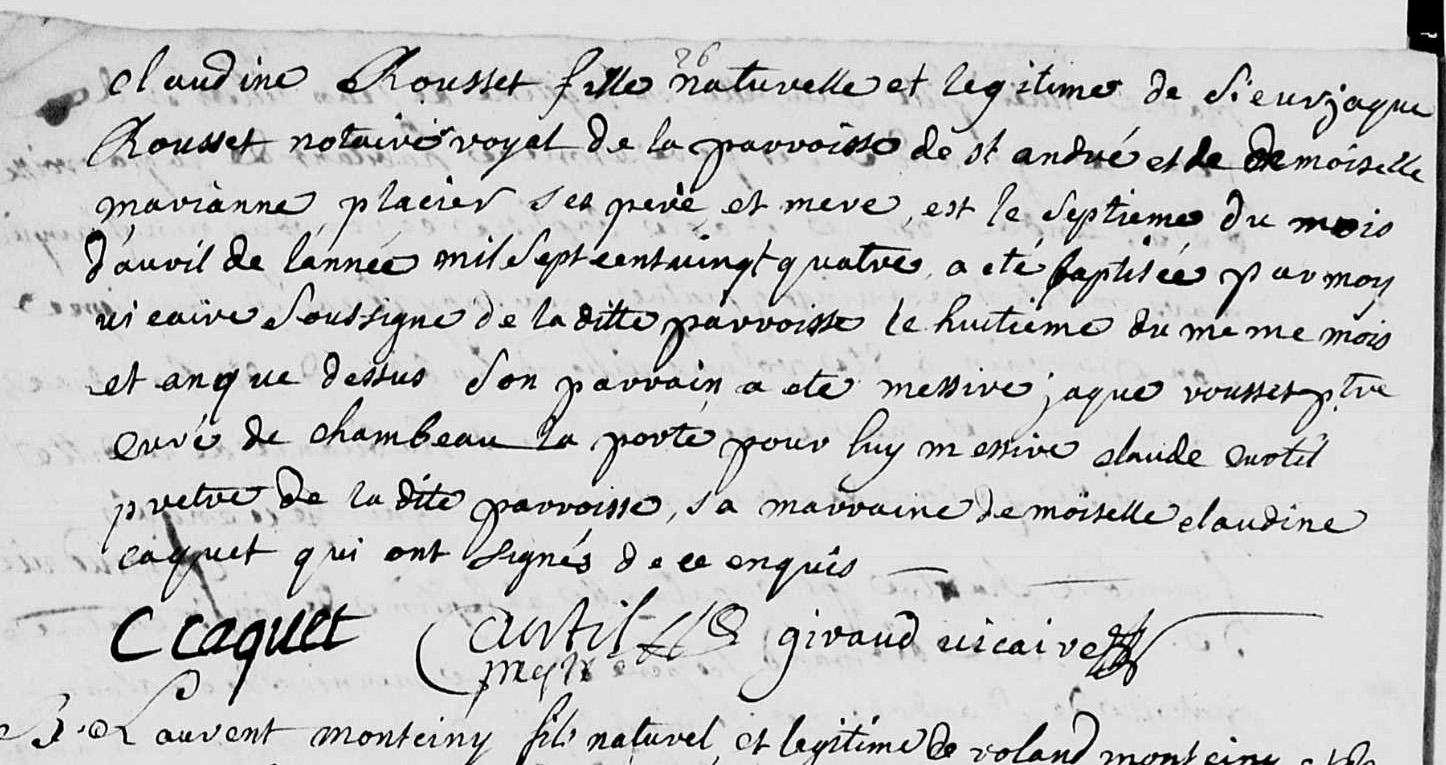 26
claudine Rousset fille naturelle et legitime de Sieur jaque
Rousset notaire royal de la parroisse de st andré et de demoiselle
marianne placier ses pere et mere, est le septieme du mois
d'auril de l'année mil sept cent uingt quatre a eté baptisée par moy
uicaire soussigne de la ditte parroisse le huitieme du meme mois
et an que dessus son parrain a eté messire jaque rousset ptre
curé de chambeau la porté pour luy messire claude curtil
pretre de la dite parroisse, sa marraine demoiselle claudine
caquet qui ont signés de ce enquis
C caquet curtil giraud uicaire
Laurent monteiny fils naturel et legitime de roland monteiny et de